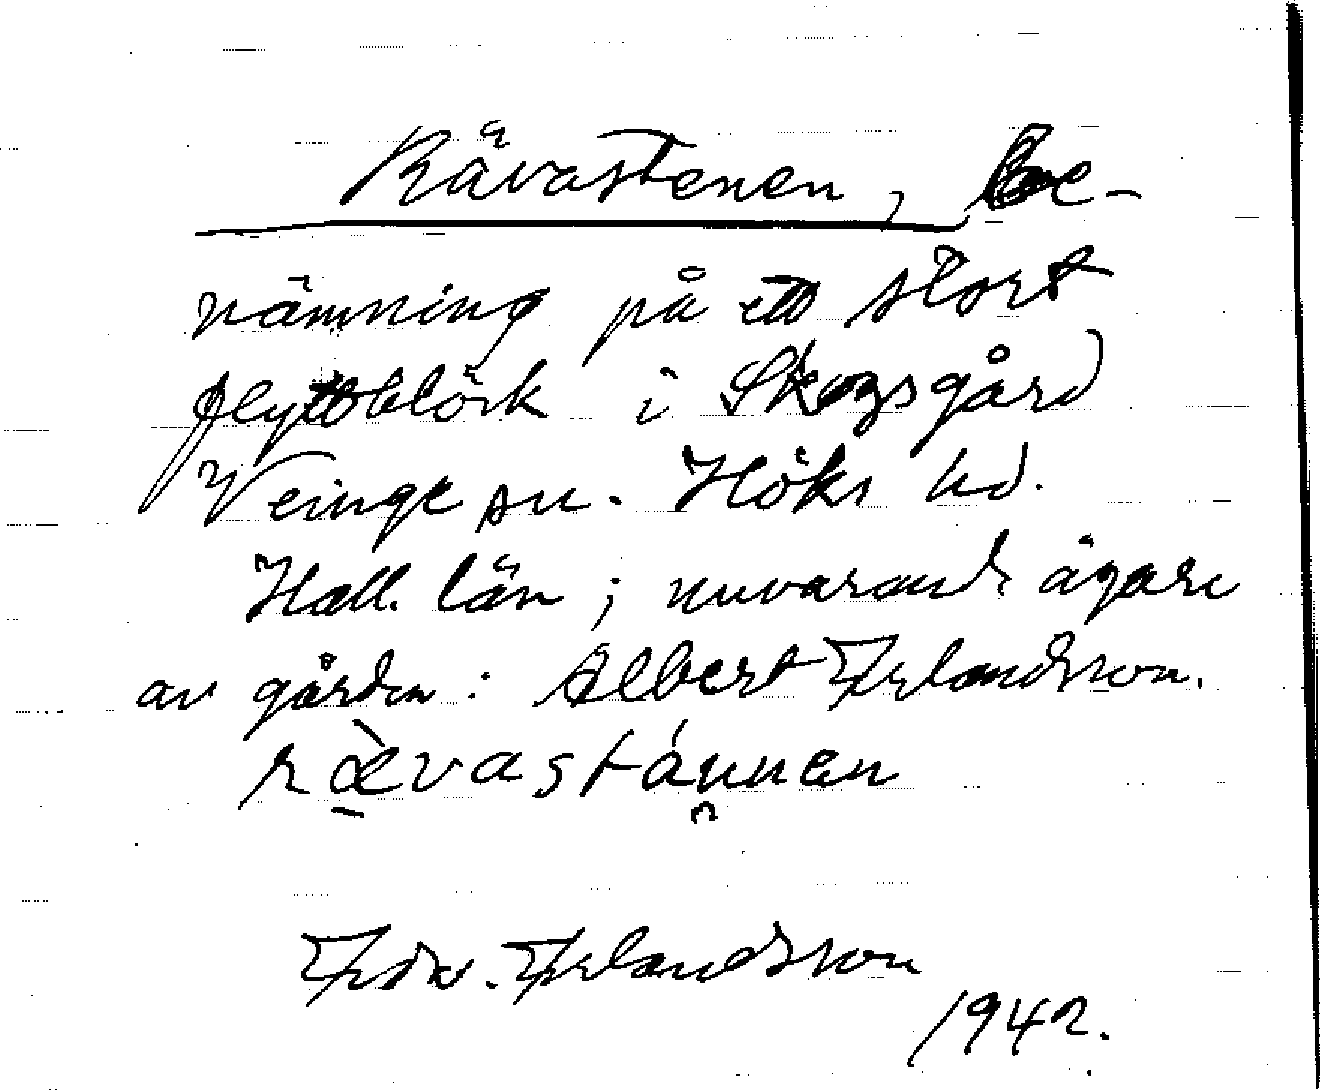 Rävastenen, be-
nämning på ett stort
flyttblock i Skogsgård
Veinge sn. Höks hd.
Hall. län; nuvarande ägare
av gården: Albert Erlandsson.
rævastánnen
Edv. Erlandsson
1942.